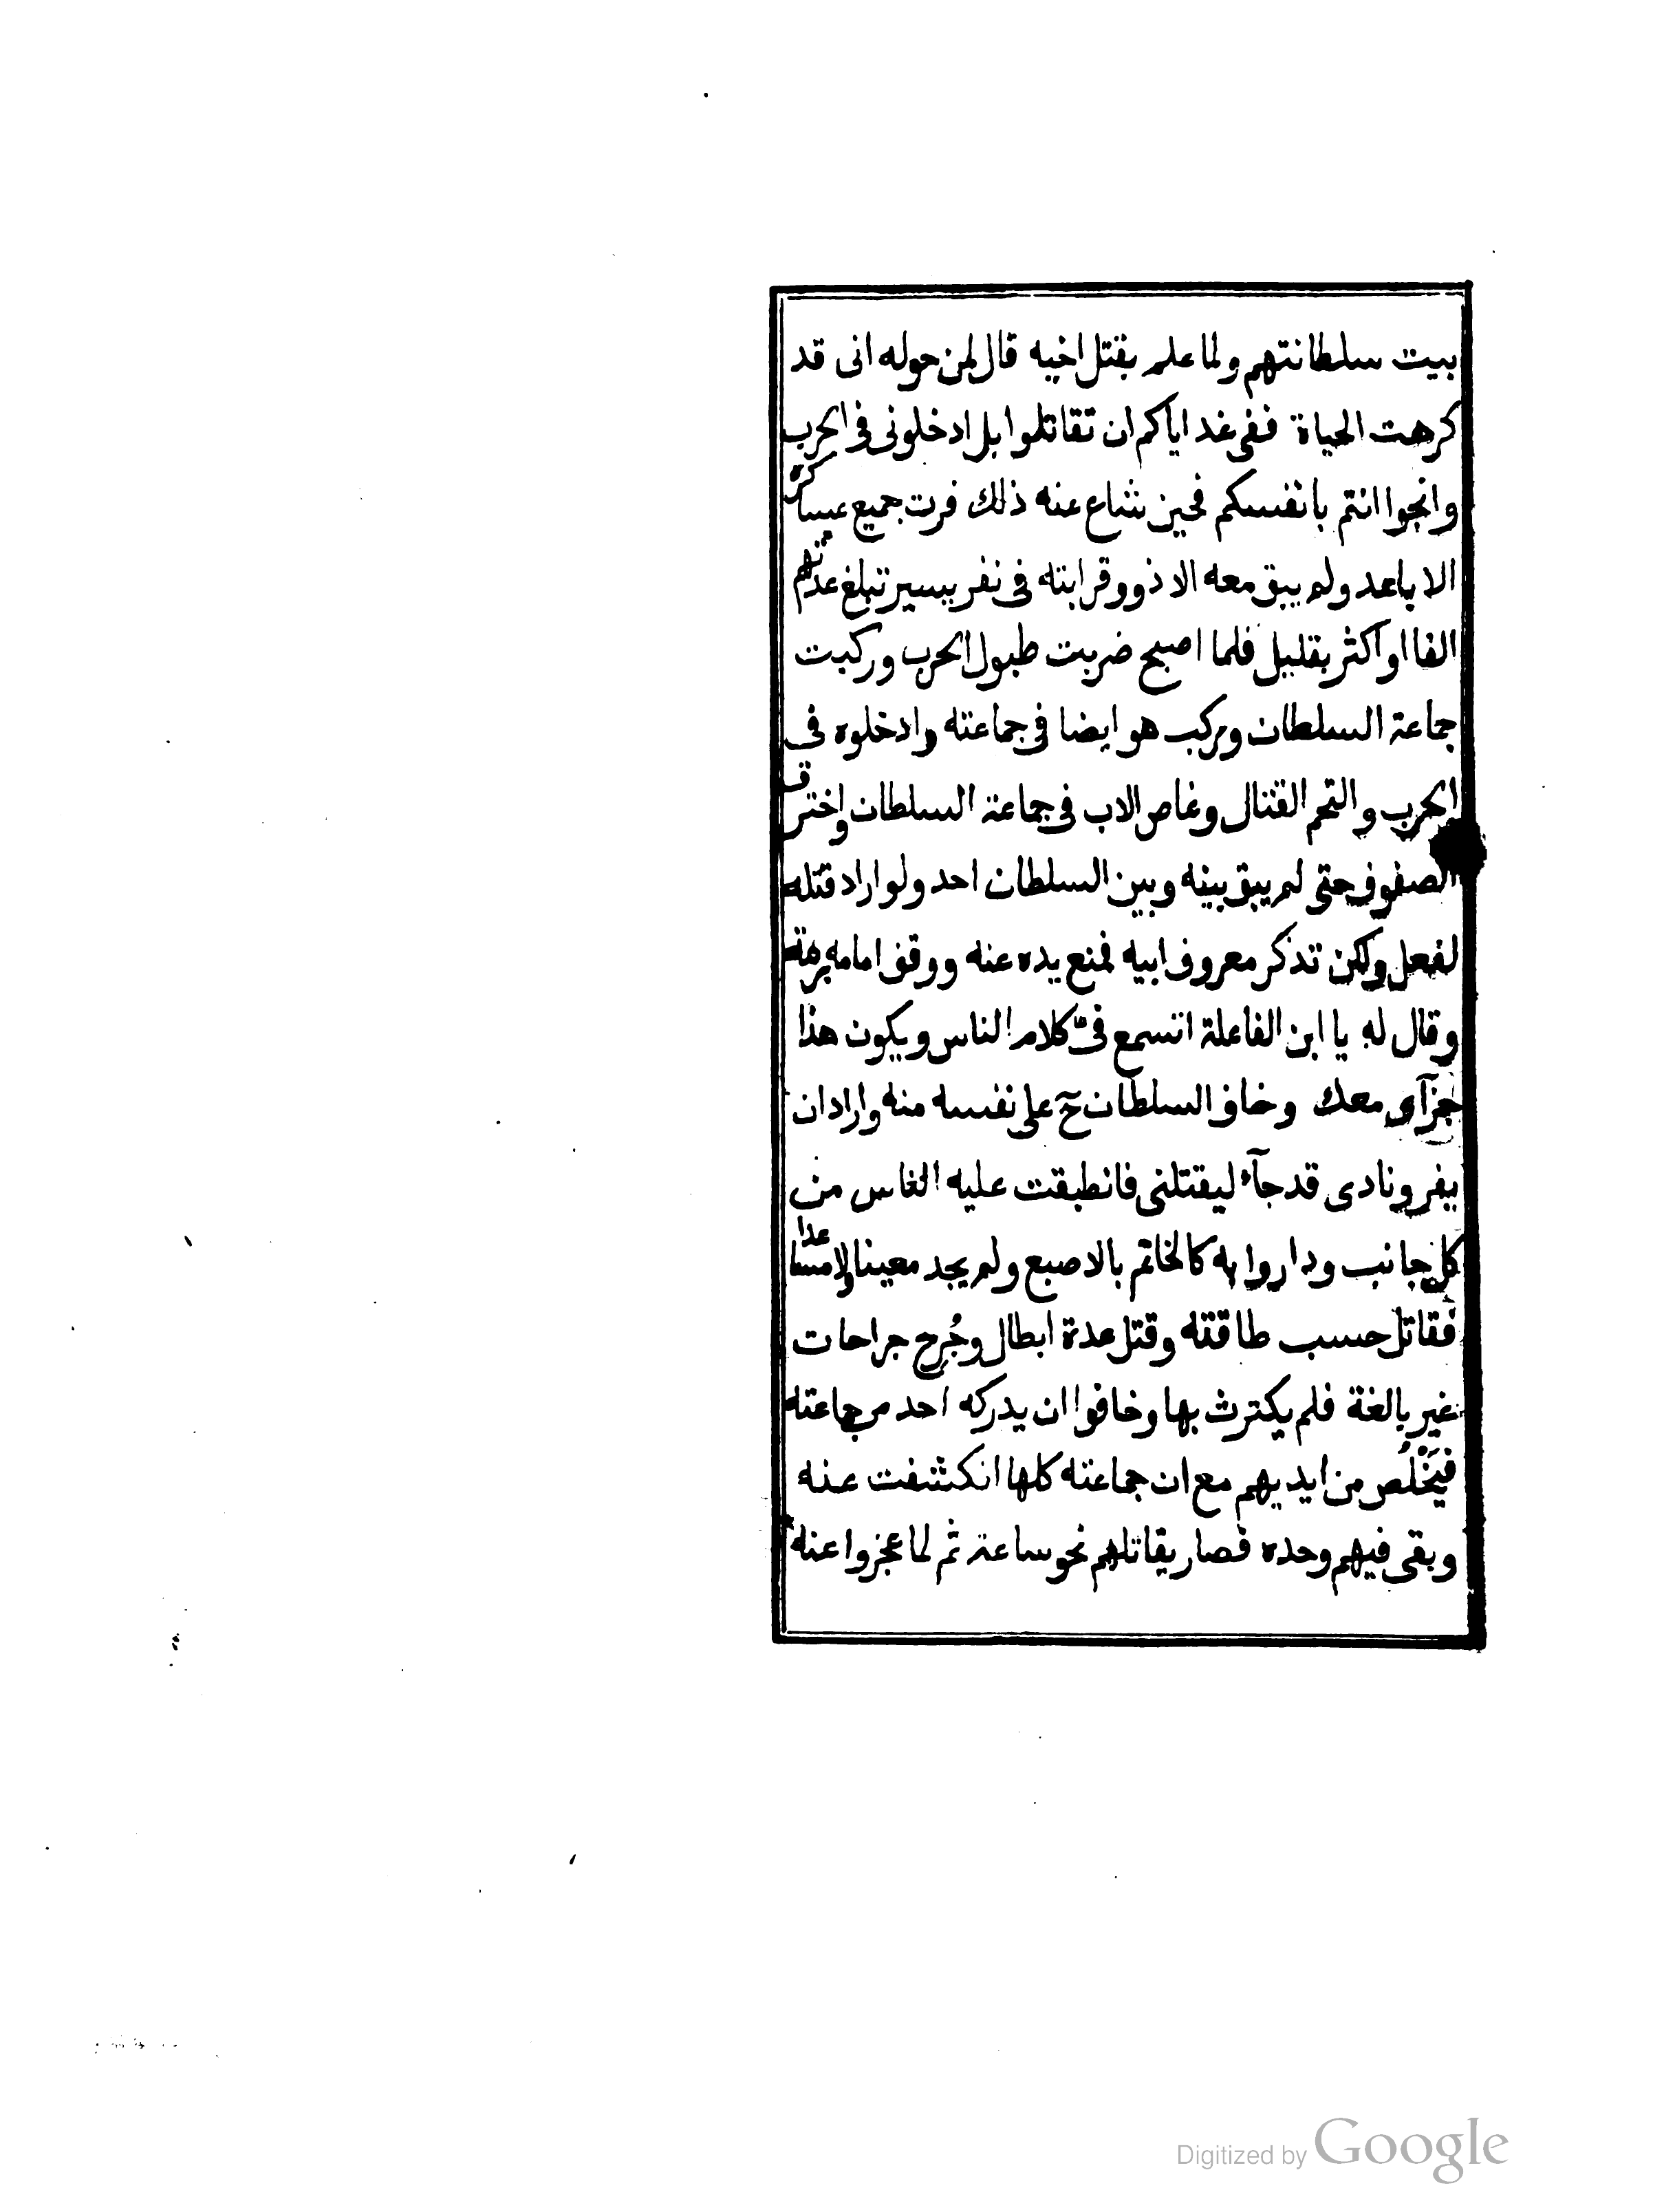 بيت سلطانتهم ولما علم بقتل اخيه قال لمن حوله انى قد
كرهت الحياة ففى غد اياكم ان تقاتلوا بل ادخلونى فى الحرب
وانجوا انتم بانفسكم فحين شاع عنه ذلك فرت جميع عساكره
الاباعد ولم يبق معه الا ذووقرابته فى نفر يسير تبلغ عدتهم
الفا او اكثر بقليل فلما اصبح ضربت طبول الحرب وركبت
جماعة السلطان وركب هو ايضا فى جماعته وادخلوه فى
الحرب والتحم القتال وغاص الاب فى جماعة السلطان واخترق
الصفوف حتى لم يبق بينه وبين السلطان احد ولو اراد قتله
لفعل ولكن تذكر معروف ابيه فمنع يده عنه ووقف امامه برهة
وقال له يا ابن الفاعلة اتسمع فىّ كلام الناس ويكون هذا
جزآى معك وخاف السلطان ح على نفسه منه واراد ان
يفر ونادى قد جآء ليقتلنى فانطبقت عليه الناس من
كل جانب وداروا به كالخاتم بالاصبع ولم يجد معينا ولا مساعدا
فقاتل حسب طاقته وقتل عدة ابطال وجُرح جراحات
غير بالغة فلم يكترث بها وخافوا ان يدركه احد من جماعته
فيَخْلُص من ايديهم مع ان جماعته كلها انكشفت عنه
وبقى فيهم وحده فصار يقاتلهم نحو ساعة ثم لما عجزوا عنه
Digitized by Google